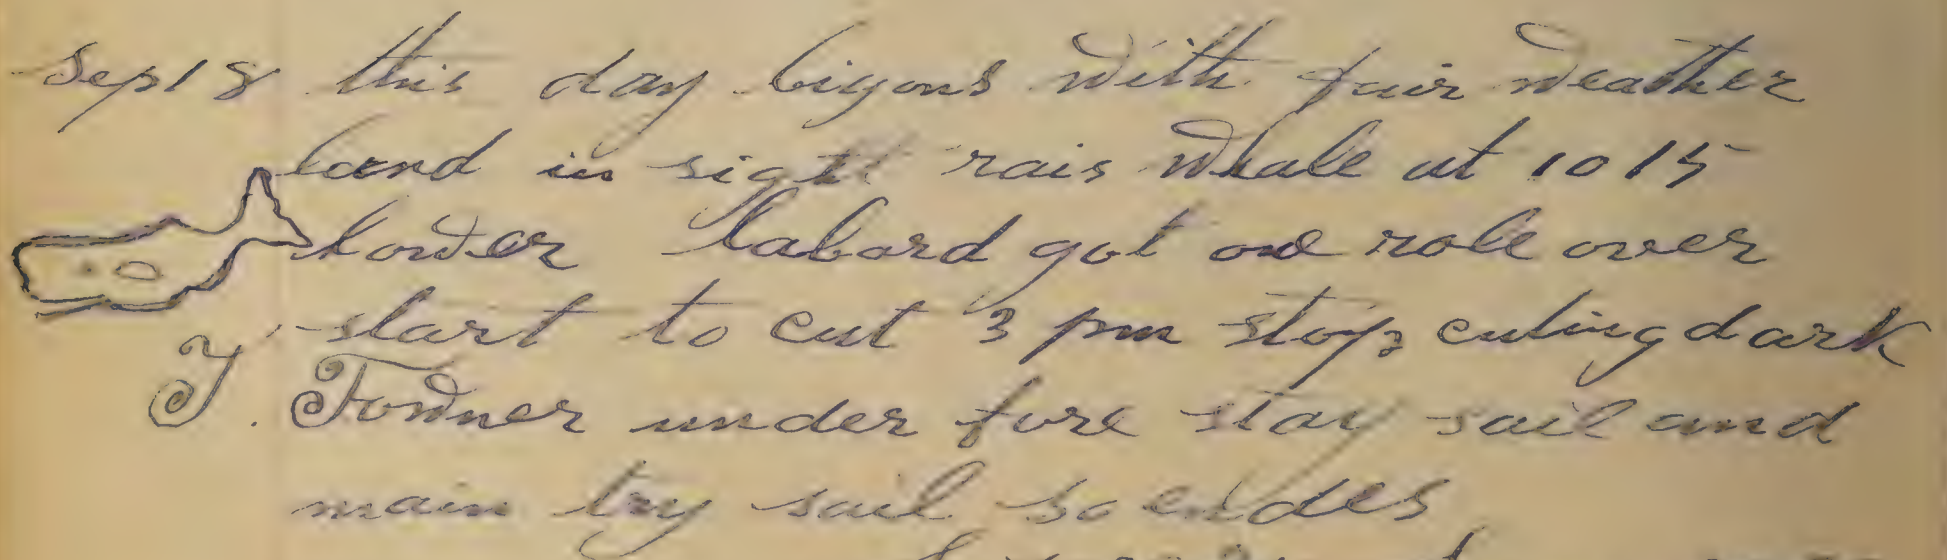 Sep 18 this day bigons with fair weather
land in sight rais whale at 10 15
lower labord got one role over
start to cut 3 pm stop cuting dark
T. Towner under fore stay sail and
main try sail so endes